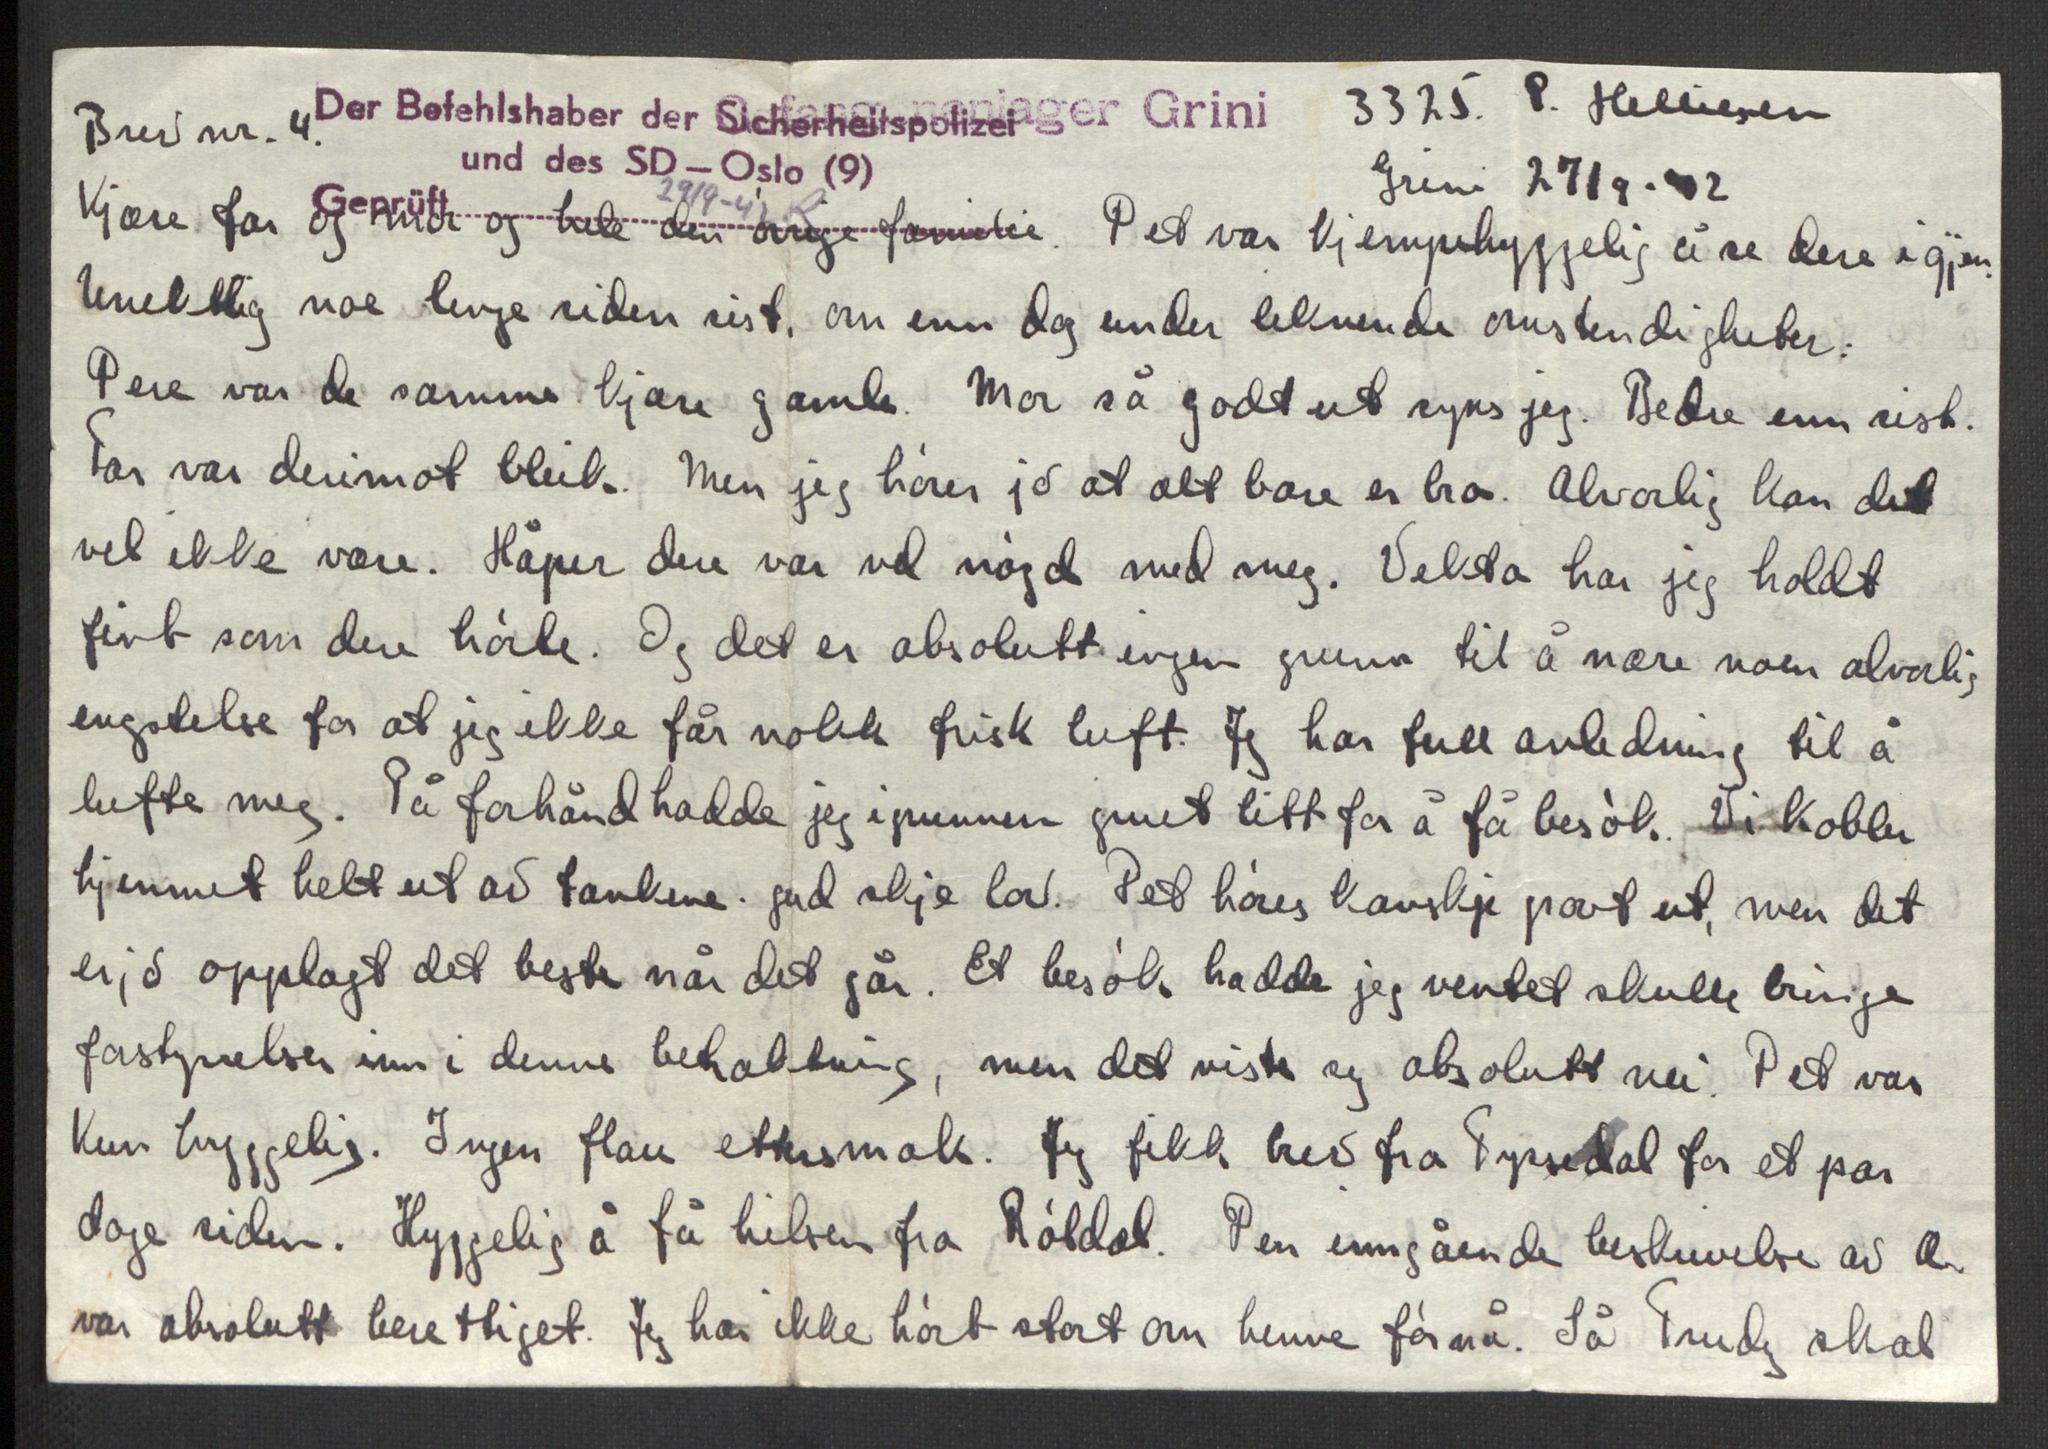 Brev nr. 4.
Der Befehlshaber der Sicherheitspolizei
und des SD – Oslo (9)
Geprüft
29/9-42
Gefangenenlager Grini
3325. P. Helliesen
Grini 27/9-42
Kjære far og mor og hele den øvrige familie. Det var kjempehyggelig å se dere igjen.
Unektlig noe lenge siden sist, om enn dog under liknende omstendigheter.
Dere var de samme kjære gamle. Mor så godt ut syns jeg. Bedre enn sist.
Far var derimot bleik. Men jeg hører jo at alt bare er bra. Alvorlig kan det
vel ikke være. Håper dere var vel nøgd med meg. Vekta har jeg holdt
fint som dere hørte. Og det er absolutt ingen grunn til å nære noen alvorlig
engstelse for at jeg ikke får nokk frisk luft. Jeg har full anledning til å
lufte meg. På forhånd hadde jeg igrunnen gruet litt for å få besøk. Vi kobler
hjemmet helt ut av tankene. gud skje lov. Det høres kanskje rart ut, men det
er jo opplagt det beste når det går. Et besøk hadde jeg ventet skulle bringe
forstyrrelser inn i denne beholdning, men det viste seg absolutt nei. Det var
kun hyggelig. Ingen flau ettersmak. Jeg fikk brev fra Tyssedal for et par
dage siden. Hyggelig å få hilsen fra Røldal. Den inngående beskrivelse av A.
var absolutt berettiget. Jeg har ikke hørt stort om henne før nå. Så Trudy skal